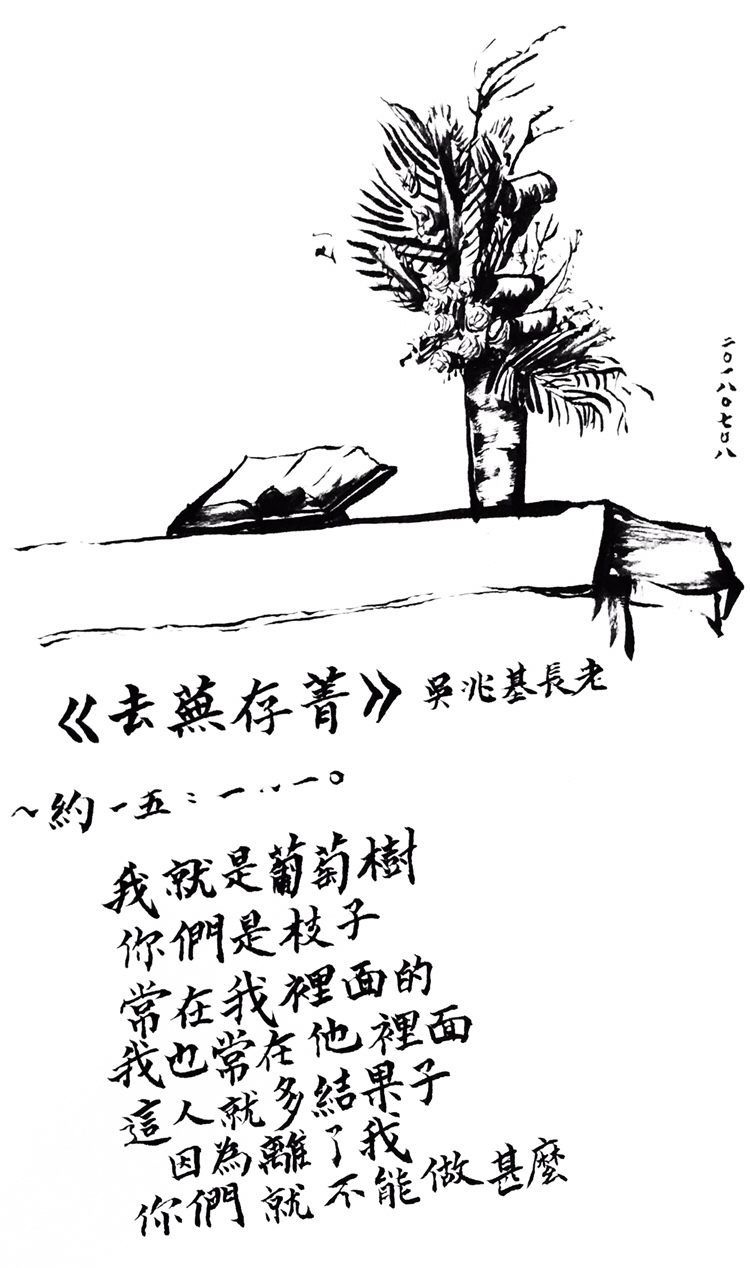 二〇一八〇七〇八
《去蕪存菁》 吳兆基長老
~約一五:一...一〇
我就是葡萄樹
你們是枝子
常在我裡面的
我也常在他裡面
這人就多結果子
因為離了我
你們就不能做甚麼